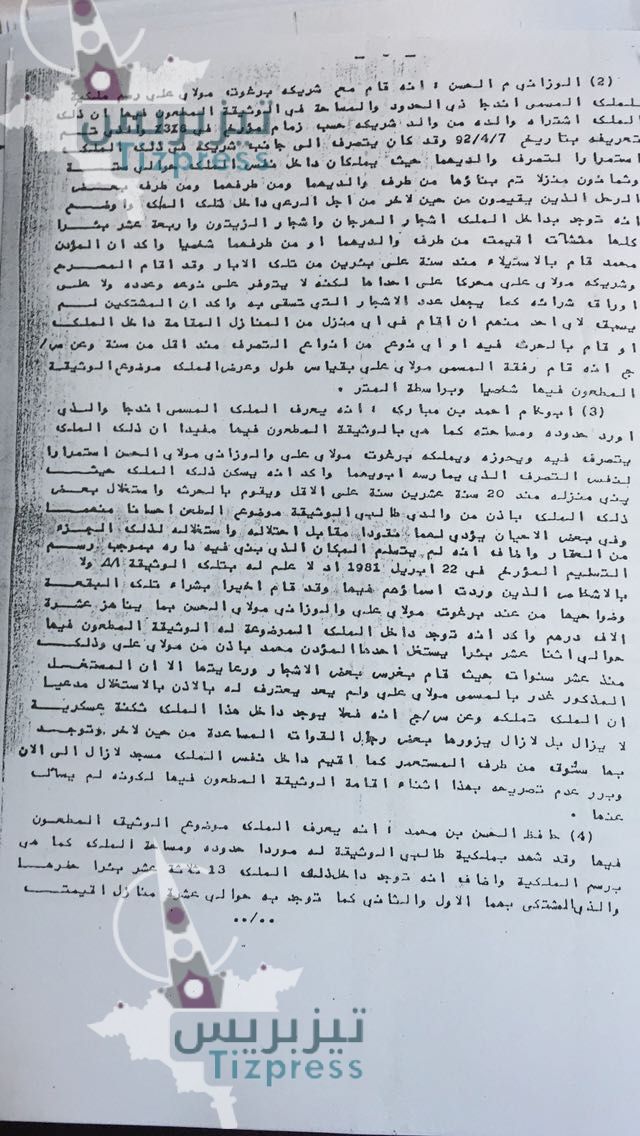 (2) الوزاني م الحسن : انه قام مع شريكه برغوت مولاي علي رسم ملكية
للملك المسمى اندجا ذي الحدود والمساحة في الوثيقة المطعون فيها ان ذلك
الملك اشتراه والده من والد شريكه حسب زمام مؤرخ في
تعريفه بتاريخ 92/4/7 وقد كان يتصرف الى جانب شريكه في ذلك الملك
استمرارا لتصرف والديهما حيث يملكان داخل نفس الملك حوالي ستة
وثمانون منزلا تم بناؤها من طرف والديهما ومن طرفهما ومن طرف بعض
الرحل الذين يقيمون من حين لاخر من اجل الرعي داخل ذلك الملك واوضح
انه توجد بداخل الملك اشجار الهرجان واشجار الزيتون واربعة عشر بئرا
كلها منشآت اقيمت من طرف والديهما او من طرفهما شخصيا واكد ان المؤدن
محمد قام بالاستيلاء مند سنة على بئرين من تلك الابار وقد اقام المصرح
وشريكه مولاي علي محركا على احداها لكنه لا يتوفر على نوعه وعدده ولا على
اوراق شرائه كما يجهل عدد الاشجار التي تسقى به واكد ان المشتكين لم
يسبق لاي احد منهم ان اقام في اي منزل من المنازل المقامة داخل الملك
او قام بالحرث فيه او اي نوع من انواع التصرف مند اقل من سنة وعن س/
ج انه قام رفقة المسمى مولاي علي بقياس طول وعرض الملك موضوع الوثيقة
المطعون فيها شخصيا وبراسطة المتر .
(3) ابوكام احمد بن مبارك : انه يعرف الملك المسمى اندجا والذي
اورد حدوده ومساحته كما هي بالوثيقة المطعون فيها مفيدا ان ذلك الملك
يتصرف فيه ويحوزه ويملكه برغوت مولاي علي والوزاني مولاي الحسن استمرارا
لنفس التصرف الذي يمارسه ابويهما واكد انه يسكن ذلك الملك حيث
بنى منزله مند 20 سنة عشرين سنة على الاقل ويقوم بالحرث واستغلال بعض
ذلك الملك باذن من والدي طالبي الوثيقة موضوع الطعن احسانا منهما
وفي بعض الاحيان يؤدي لهما نقودا مقابل احتلاله واستغلاله لذلك الجزء
من العقار واضاف انه لم يتسلم المكان الذي بنى فيه داره بموجب رسم
التسليم المؤرخ في 22 ابريل 1981 اد لا علم له بتلك الوثيقة ولا
بالاشخاص الذين وردت اسماؤهم فيها وقد قام اخيرا بشراء تلك البقعة
وضواحيها من عند برغوت مولاي علي والوزاني مولاي الحسن بما يناهز عشرة
الاف درهم واكد انه توجد داخل الملك الموضوعة له الوثيقة المطعون فيها
حوالي اثنا عشر بئرا يستغل احدها المؤدن محمد باذن من مولاي علي وذلك
منذ عشر سنوات حيث قام بغرس بعض الاشجار ورعايتها الا ان المستغل
المذكور غدر بالمسمى مولاي علي ولم يعد يعترف له بالاذن بالاستغلال مدعيا
ان الملك تملكه وعن س/ج انه فعلا يوجد داخل هذا الملك ثكنة عسكرية
لا يزال بل لازال يزورها بعض رجال القوات المساعدة من حين لاخر وتوجد
بها سوق من طرف المستعمر كما اقيم داخل نفس الملك مسجد لازال الى الان
وبرر عدم تصريحه بهذا اثناء اقامة الوثيقة المطعون فيها لكونه لم يسأل
عنها .
(4) حافظ الحسن بن محمد : انه يعرف الملك موضوع الوثيق المطعون
فيها وقد شهد بملكية طالبي الوثيقة له موردا حدوده ومساحة الملك كما هي
برسم الملكية واضاف انه توجد داخل ذلك الملك 13 ثلاثة عشر بئرا حفرها
والذي المشتكى بهما الاول والثاني كما توجد به حوالي عشرة منازل اقيمت
../..
تيزبريس
Tizpress
تيزبريس
Tizpress